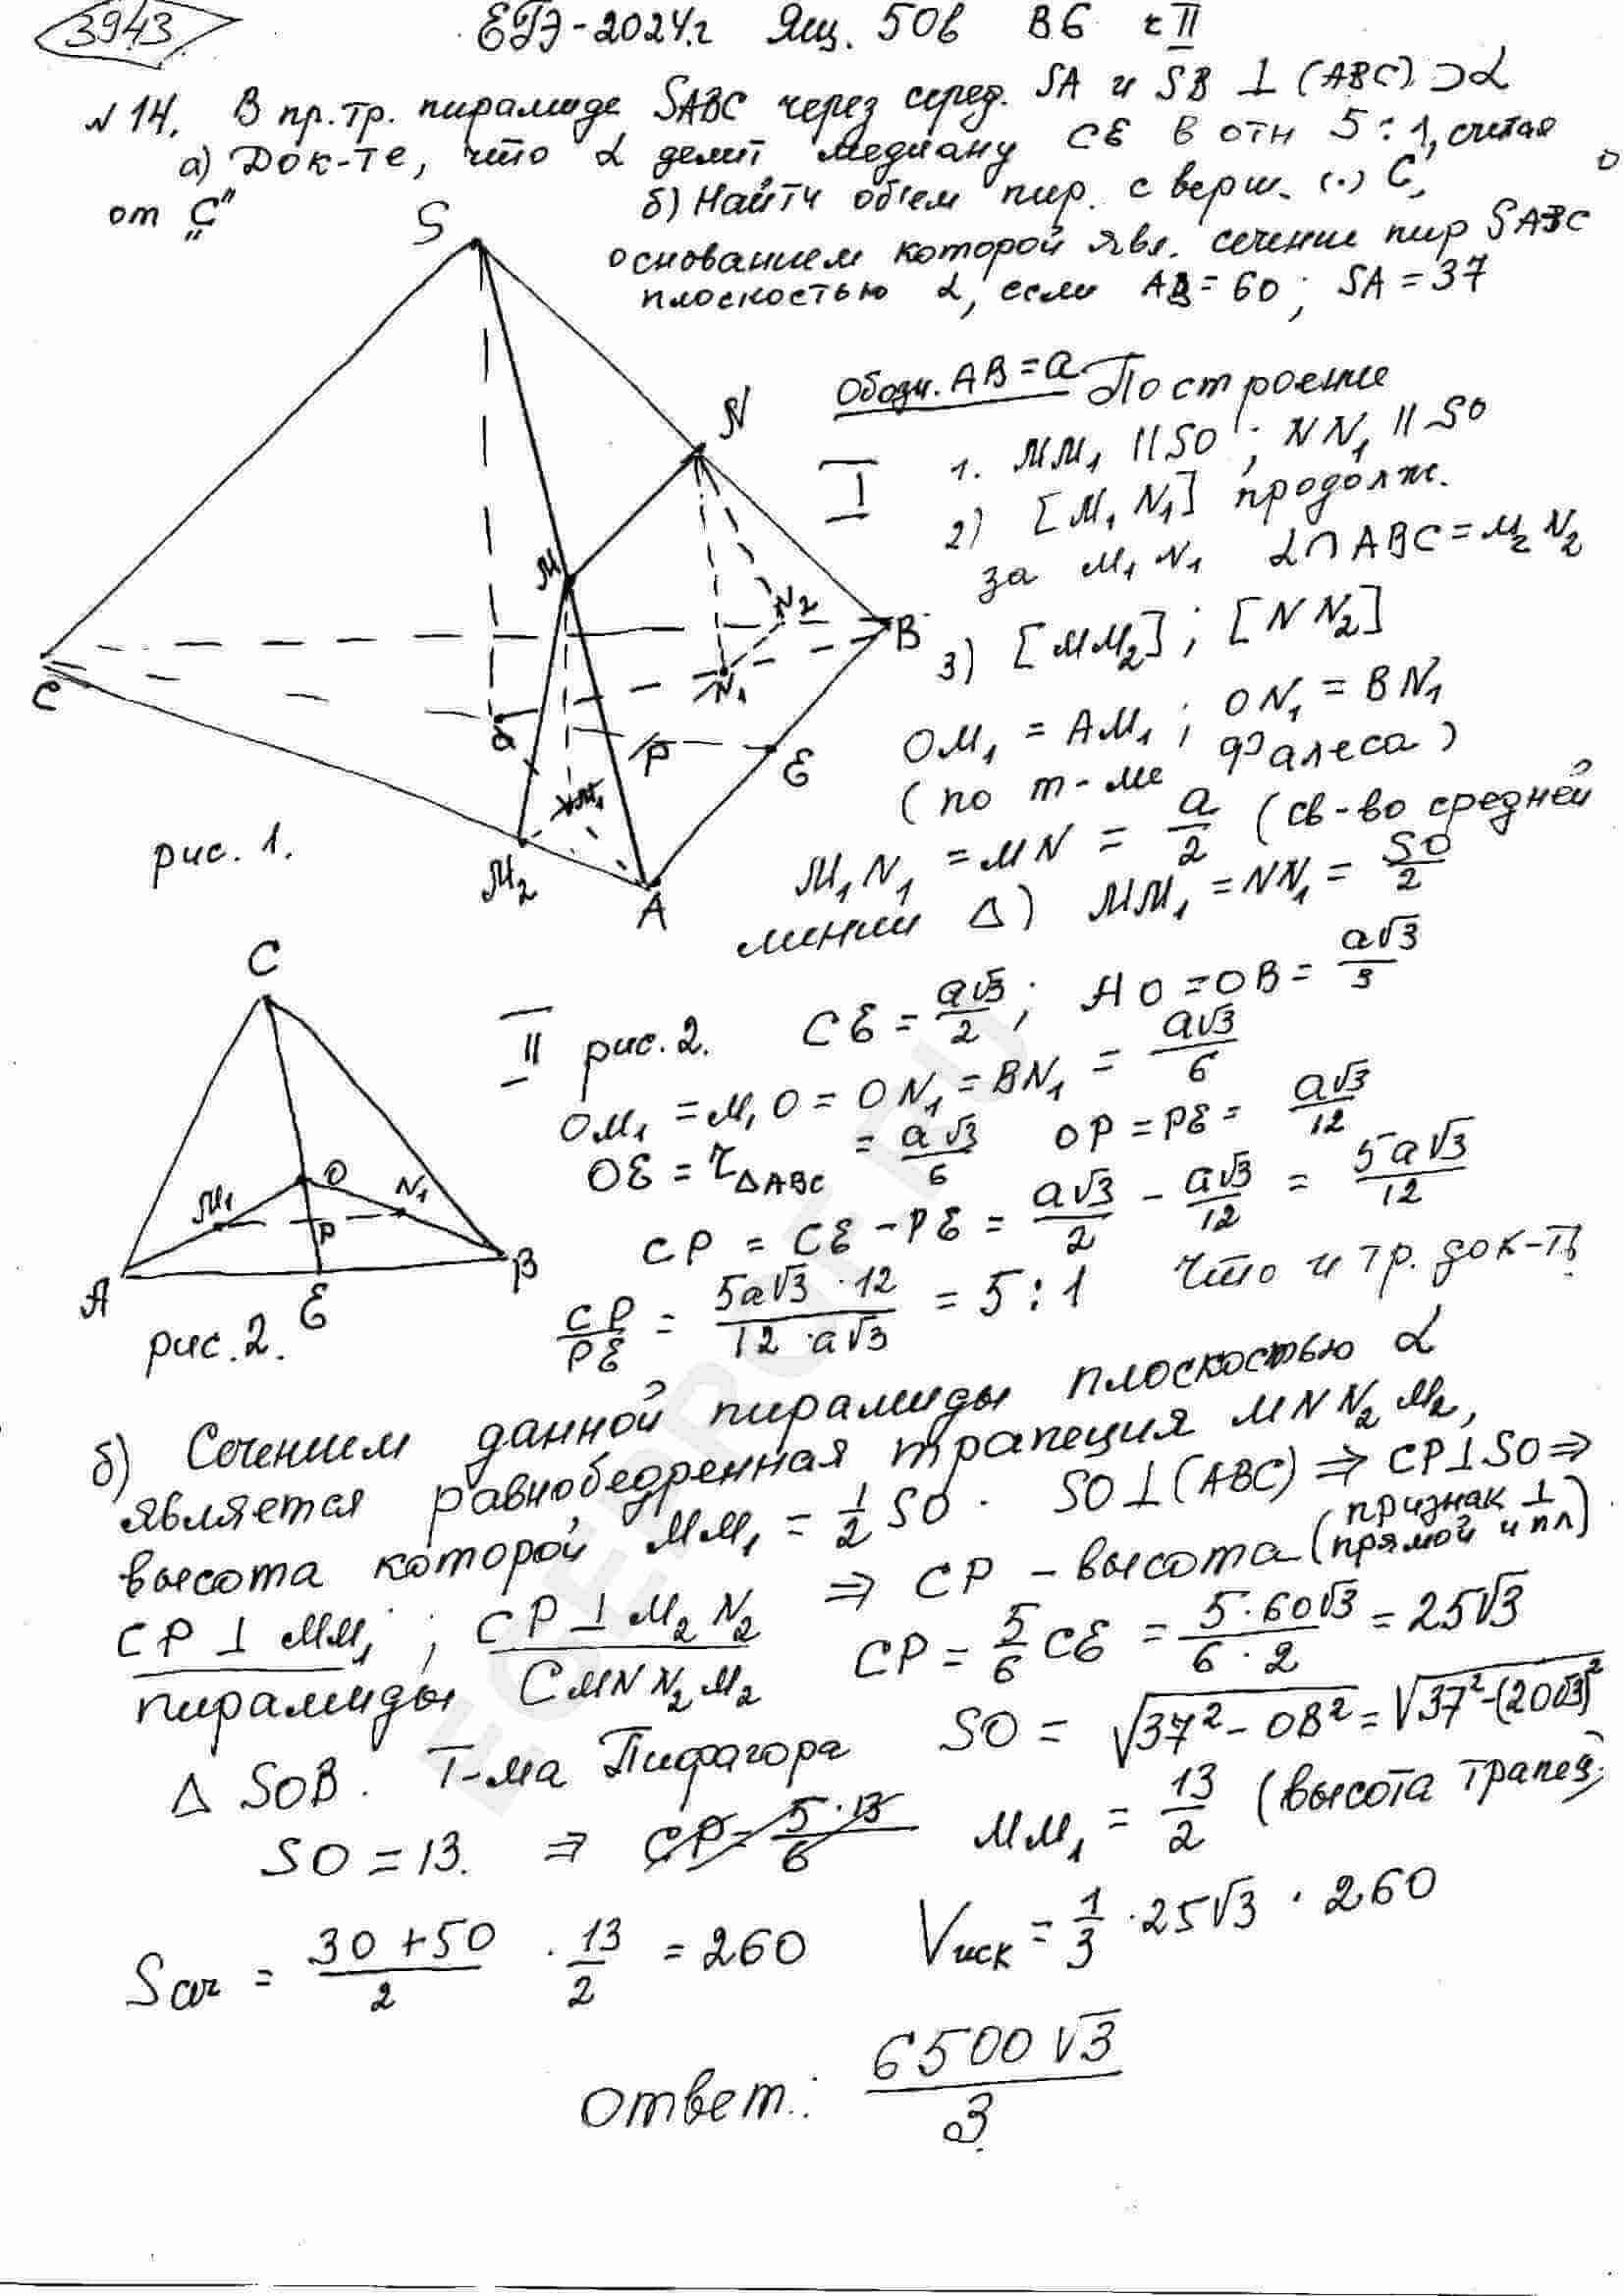 3943
ЕГЭ-2024г Ящ. 50в В6 ч II
N 14. В пр. тр. пирамиде SABC через серед. SA и SB ⊥ (ABC) ⊃ α
а) Док-те, что α делит медиану CE в отн 5:1, считая
от "C"
б) Найти объем пир. с верш. (·) C,
основанием которой явл. сечение пир SABC
плоскостью α, если AB = 60; SA = 37
S
N
M
C
B
N2
N1
O
P
E
M1
M2
A
рис. 1.
Обозн. AB = a Построение
I 1. MM1 || SO; NN1 || SO
2) [M1 N1] продолж.
за M1 N1 α∩ABC = M2 N2
3) [MM2]; [NN2]
OM1 = AM1; ON1 = BN1
(по т-ме Фалеса)
M1N1 = MN = a/2 (св-во средней
линии Δ) MM1 = NN1 = SO/2
C
O
M1
N1
P
A
E
B
рис. 2.
II рис. 2. CE = a√3/2; AO = OB = a√3/3
OM1 = M1O = ON1 = BN1 = a√3/6
OE = rΔABC = a√3/6 OP = PE = a√3/12
CP = CE - PE = a√3/2 - a√3/12 = 5a√3/12
CP/PE = 5a√3·12/12·a√3 = 5:1 Что и тр. док-ть
б) Сечением данной пирамиды плоскостью α
является равнобедренная трапеция MNN2M2,
высота которой MM1 = 1/2 SO. SO ⊥ (ABC) ⇒ CP ⊥ SO ⇒
CP ⊥ MM1; CP ⊥ M2N2 ⇒ CP - высота (признак ⊥ прямой и пл)
пирамиды CMNN2M2 CP = 5/6 CE = 5·60√3/6·2 = 25√3
Δ SOB. Т-ма Пифагора SO = √37² - OB² = √37² - (20√3)²
SO = 13. ⇒ CP = 5·13/6 MM1 = 13/2 (высота трапец.)
Sсеч = 30+50/2 · 13/2 = 260 Vиск = 1/3 · 25√3 · 260
Ответ: 6500√3/3